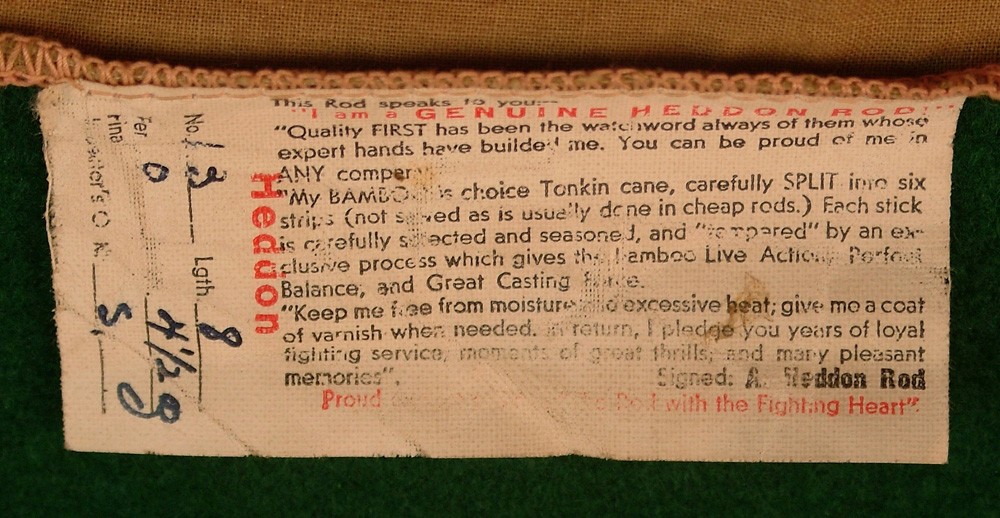 This Rod speaks to you:—
"I am a GENUINE HEDDON ROD!"
"Quality FIRST has been the watchword always of them whose
expert hands have builded me. You can be proud of me in
ANY
"My BAMBOO is choice Tonkin cane, carefully SPLIT into six
strips (not sawed as is usually done in cheap rods.) Each stick
is carefully selected and seasoned, and "tempered" by an ex-
clusive process which gives the Bamboo Live Action, Perfect
Balance, and Great Casting Force.
"Keep me free from moisture and excessive heat; give me a coat
of varnish when needed. In return, I pledge you years of loyal
fighting service, moments of great thrills, and many pleasant
memories".
Signed: A. Heddon Rod
Proud Rod with the Fighting Heart".
Heddon
No. 13 Lgth. 8
0 4 1/2 08
S.